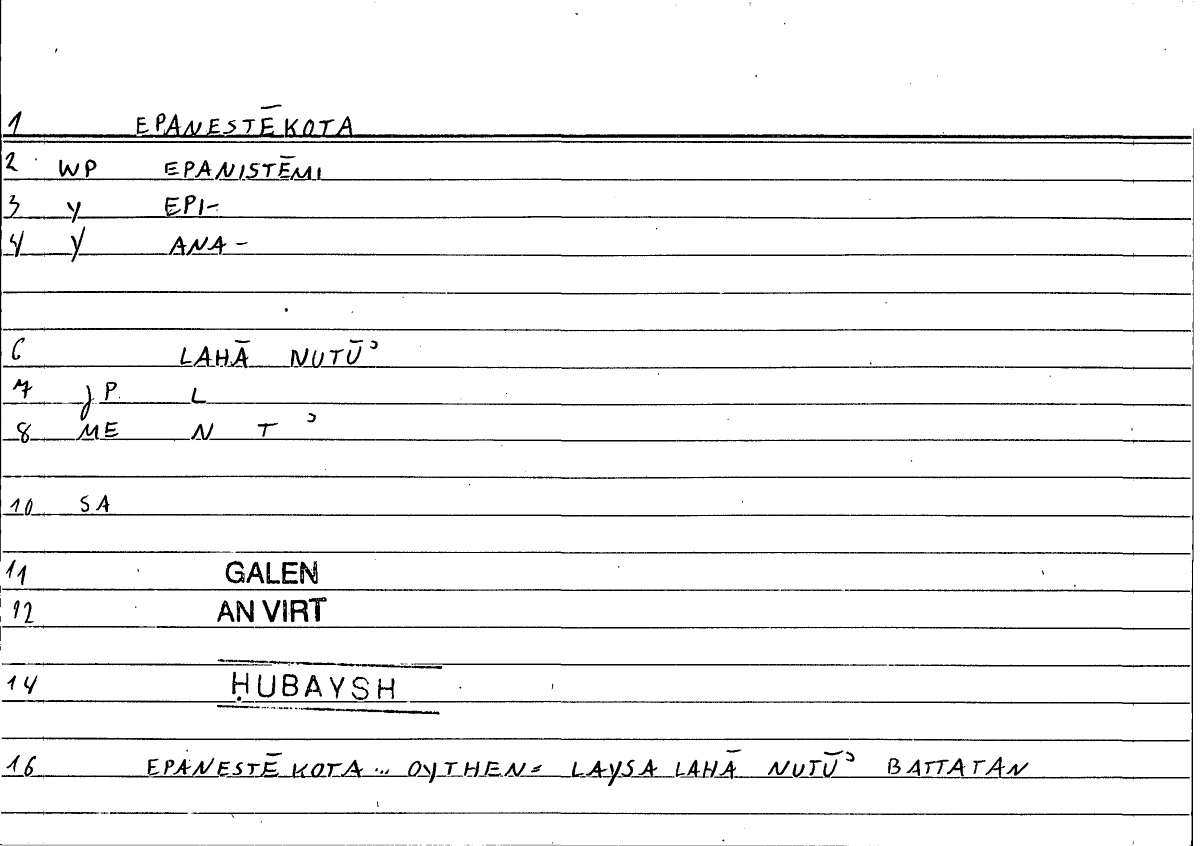 1 EPANESTĒKOTA
2 WP EPANISTĒMI
3 y EPI-
4 y ANA-
6 LAHĀ NUTŪʾ
7 JP L
8 ME N T ʾ
10 SA
11 GALEN
12 AN VIRT
14 ḤUBAYSH
16 EPANESTĒKOTA... OYTHEN= LAYSA LAHĀ NUTŪʾ BATTATAN